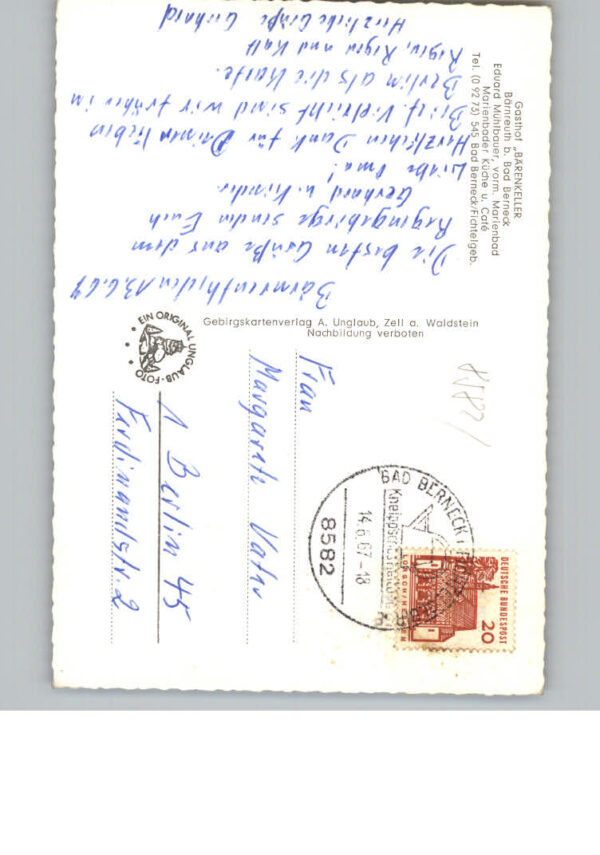 Gasthof „BÄRENKELLER
Bärnreuth b. Bad Berneck
Eduard Mühlbauer, vorm. Marienbad
Marienbader Küche u. Café
Tel. (0 92 73) 545 Bad Berneck/Fichtelgeb.
Bärnreuth, den 13.6.67
Die besten Grüße aus dem
Regengebirge senden Euch
Gerhard u. Kinder
Liebe Oma!
Herzlichen Dank für Deinen lieben
Brief. Vielleicht sind wir früher in
Berlin als die Karte.
Regen, Regen und Kalt
Herzliche Grüße Gerhard
Gebirgskartenverlag A. Unglaub, Zell a. Waldstein
Nachbildung verboten
EIN ORIGINAL UNGLAUB-FOTO
Frau
Margarete Vater
1 Berlin 45
Ferdinandstr. 2
8582
BAD BERNECK
14.6.67-18
DEUTSCHE BUNDESPOST
20